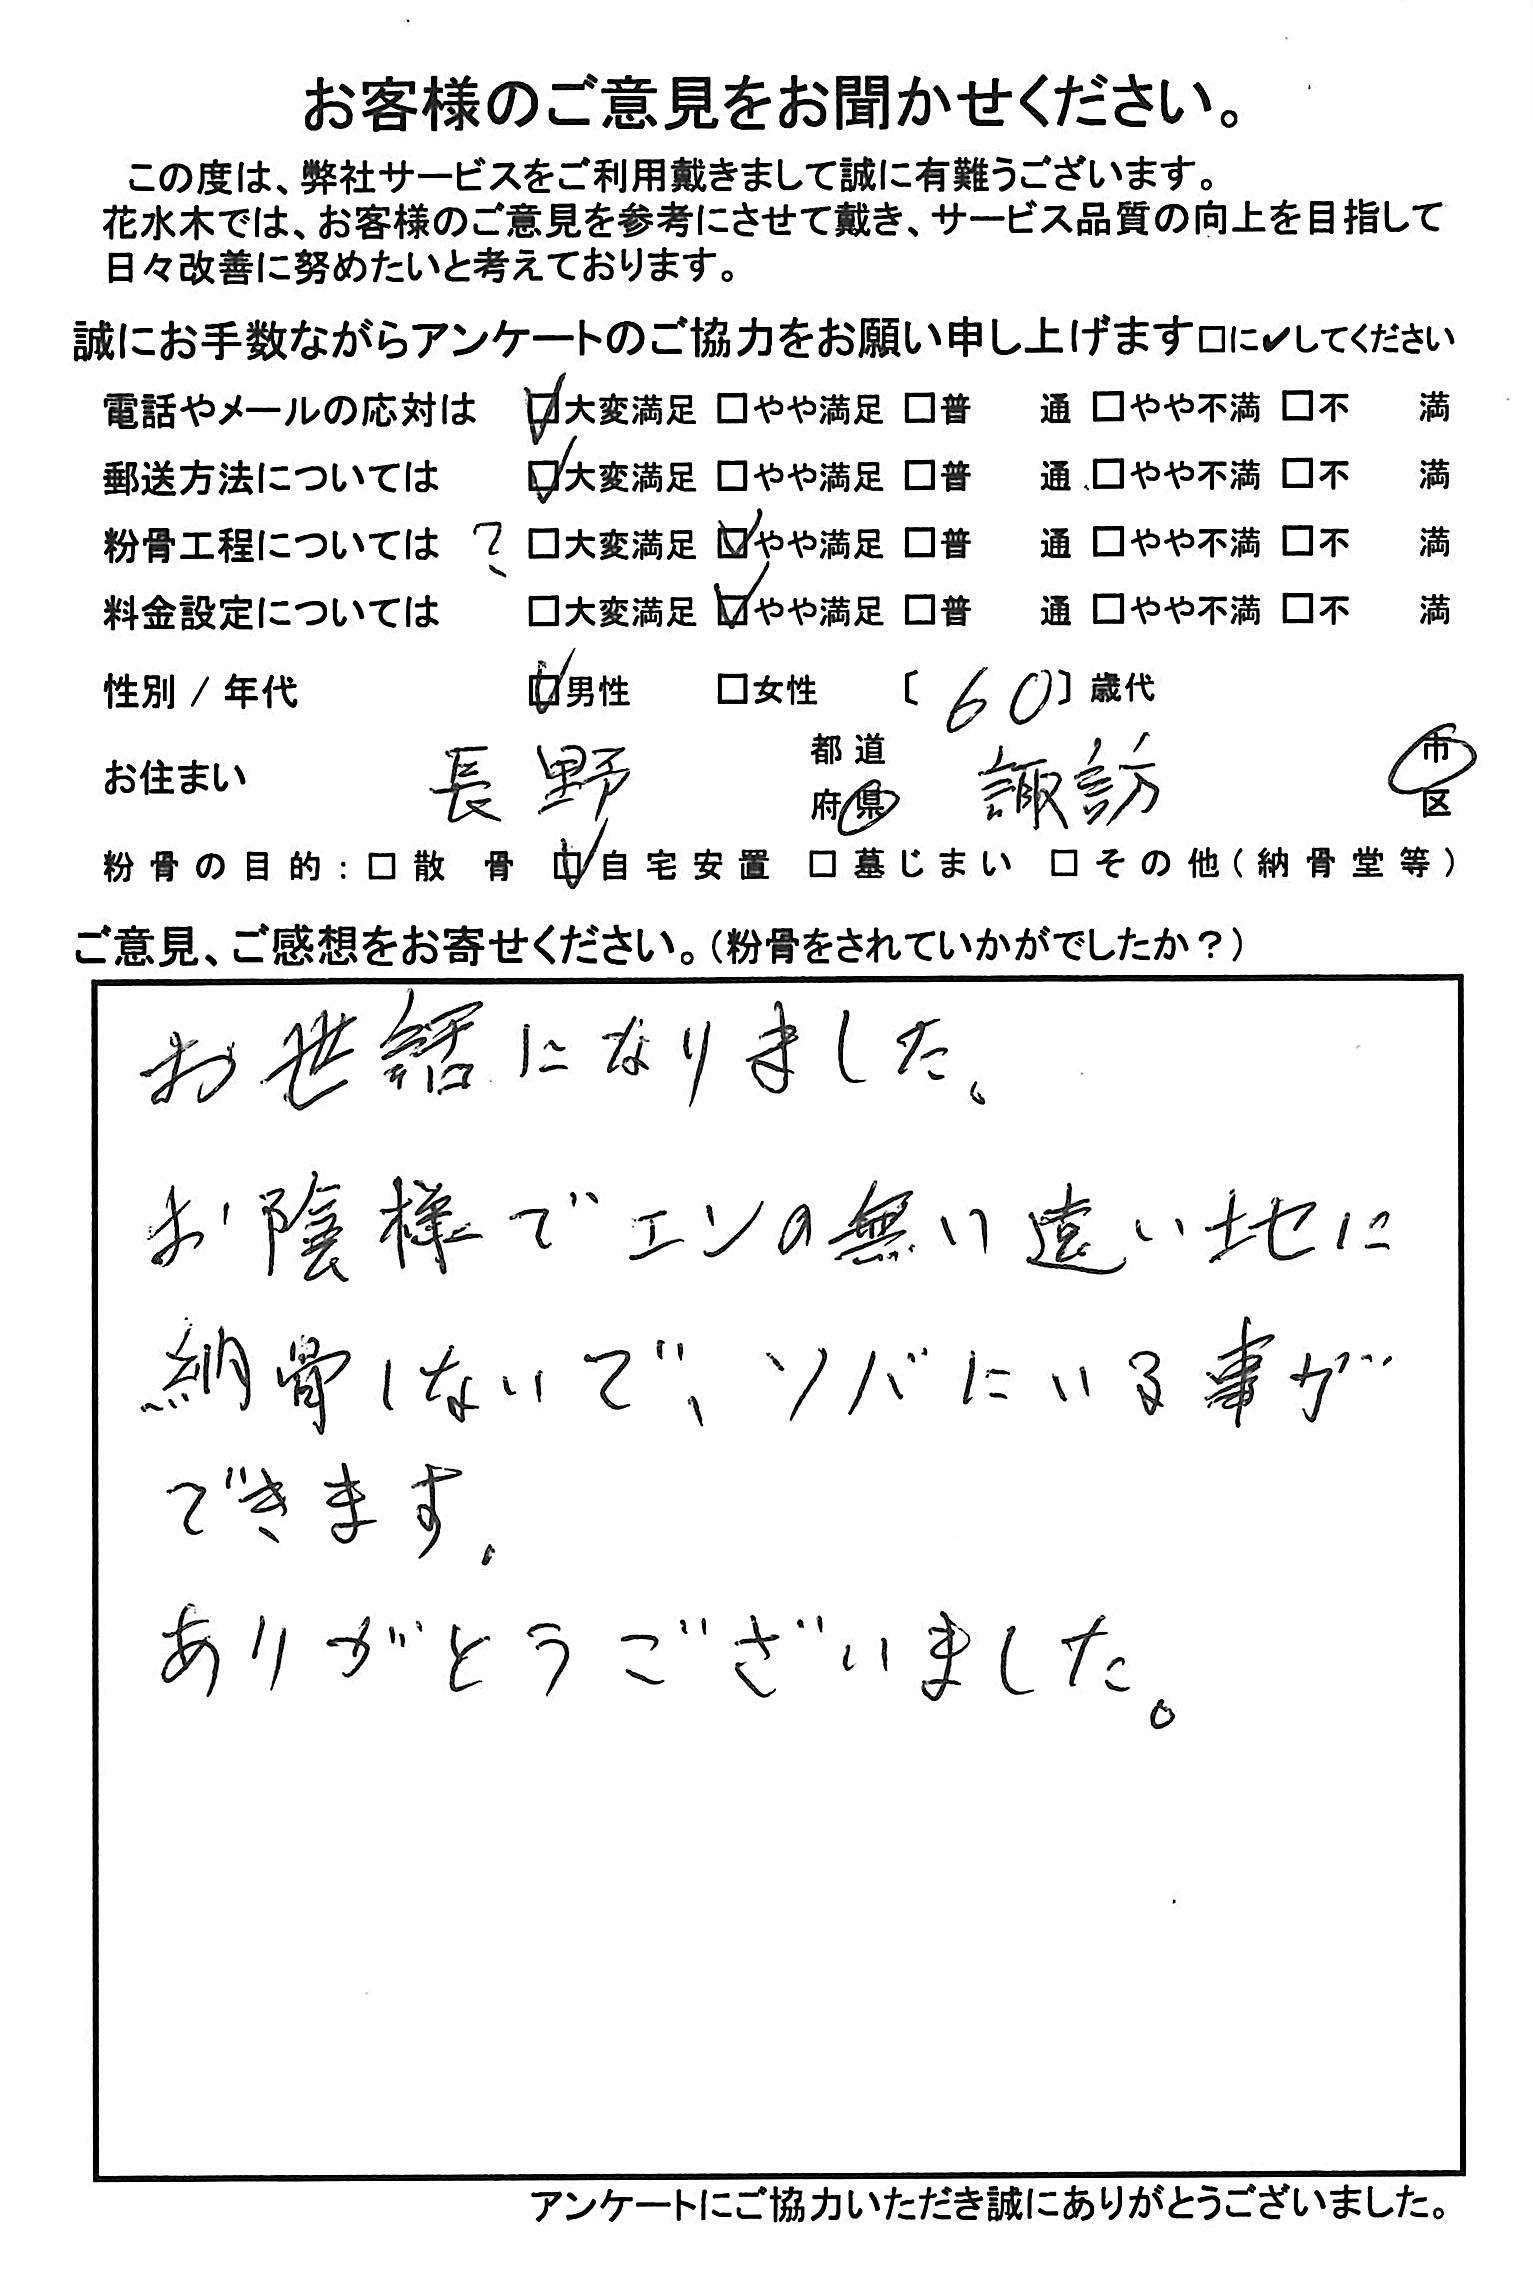 お客様のご意見をお聞かせください。
この度は、弊社サービスをご利用戴きまして誠に有難うございます。
花水木では、お客様のご意見を参考にさせて戴き、サービス品質の向上を目指して
日々改善に努めたいと考えております。
誠にお手数ながらアンケートのご協力をお願い申し上げます□に✔してください
電話やメールの応対は ☑大変満足 □やや満足 □普 通 □やや不満 □不 満
郵送方法については ☑大変満足 □やや満足 □普 通 □やや不満 □不 満
粉骨工程については ? □大変満足 ☑やや満足 □普 通 □やや不満 □不 満
料金設定については □大変満足 ☑やや満足 □普 通 □やや不満 □不 満
性別 / 年代 ☑男性 □女性 〔 60 〕歳代
お住まい 長野 都道府県 諏訪 市区
粉骨の目的:□散 骨 ☑自宅安置 □墓じまい □その他(納骨堂等)
ご意見、ご感想をお寄せください。(粉骨をされていかがでしたか?)
お世話になりました、
お陰様でエンの無い遠い地に
納骨しないで、ソバにいる事が
できます。
ありがとうございました。
アンケートにご協力いただき誠にありがとうございました。